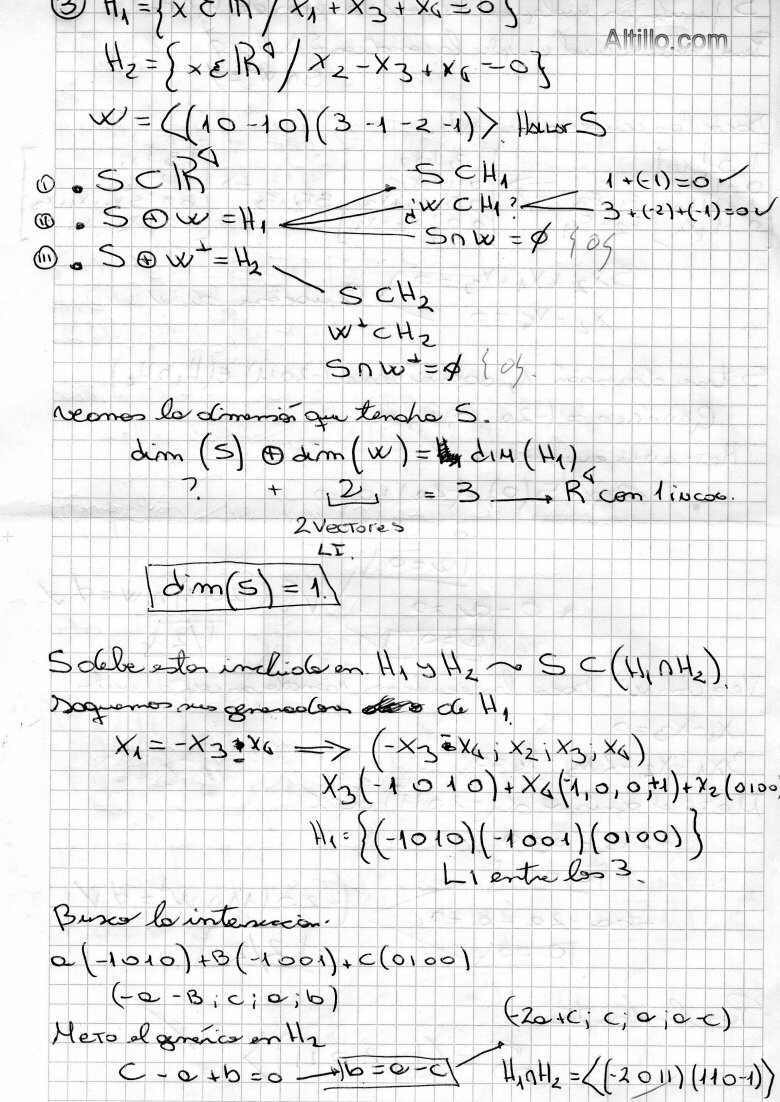 ③ H₁ = {x ∈ ℝ⁴ / x₁ + x₃ + x₄ = 0}
Altillo.com
H₂ = {x ∈ ℝ⁴ / x₂ - x₃ + x₄ = 0}
W = <(1 0 -1 0)(3 -1 -2 -1)> Hallar S
Ⓘ • S ⊂ ℝ⁴
S ⊂ H₁
1 + (-1) = 0 ✓
Ⓘⓘ • S ⊕ W = H₁
¿W ⊂ H₁?
3 + (-2) + (-1) = 0 ✓
S ∩ W = ∅ {0}
Ⓘⓘⓘ • S ⊕ W^⊥ = H₂
S ⊂ H₂
W^⊥ ⊂ H₂
S ∩ W^⊥ = ∅ {0}.
veamos la dimensión que tendra S.
dim (S) ⊕ dim (W) = dim (H₁)
? + 2 = 3 → ℝ⁴ con 1 incog.
2 vectores
LI.
dim(S) = 1.
S debe estar incluido en H₁ y H₂ ⤳ S ⊂ (H₁ ∩ H₂).
Saquemos sus generadores de H₁
x₁ = -x₃ - x₄ ⟹ (-x₃ - x₄; x₂; x₃; x₄)
x₃(-1 0 1 0) + x₄(-1, 0, 0, +1) + x₂(0 1 0 0)
H₁ = {(-1 0 1 0)(-1 0 0 1)(0 1 0 0)}
LI entre los 3.
Busco la interseccion.
a(-1 0 1 0) + B(-1 0 0 1) + c(0 1 0 0)
(-a - B; c; a; b)
Meto el generico en H₂
(-2a + c; c; a; a - c)
c - a + b = 0 → b = a - c
H₁∩H₂ = <(-2 0 1 1)(1 1 0 -1)>